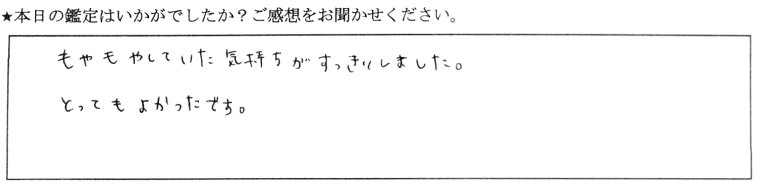 ★本日の鑑定はいかがでしたか？ご感想をお聞かせください。
もやもやしていた気持ちがすっきりしました。
とってもよかったです。